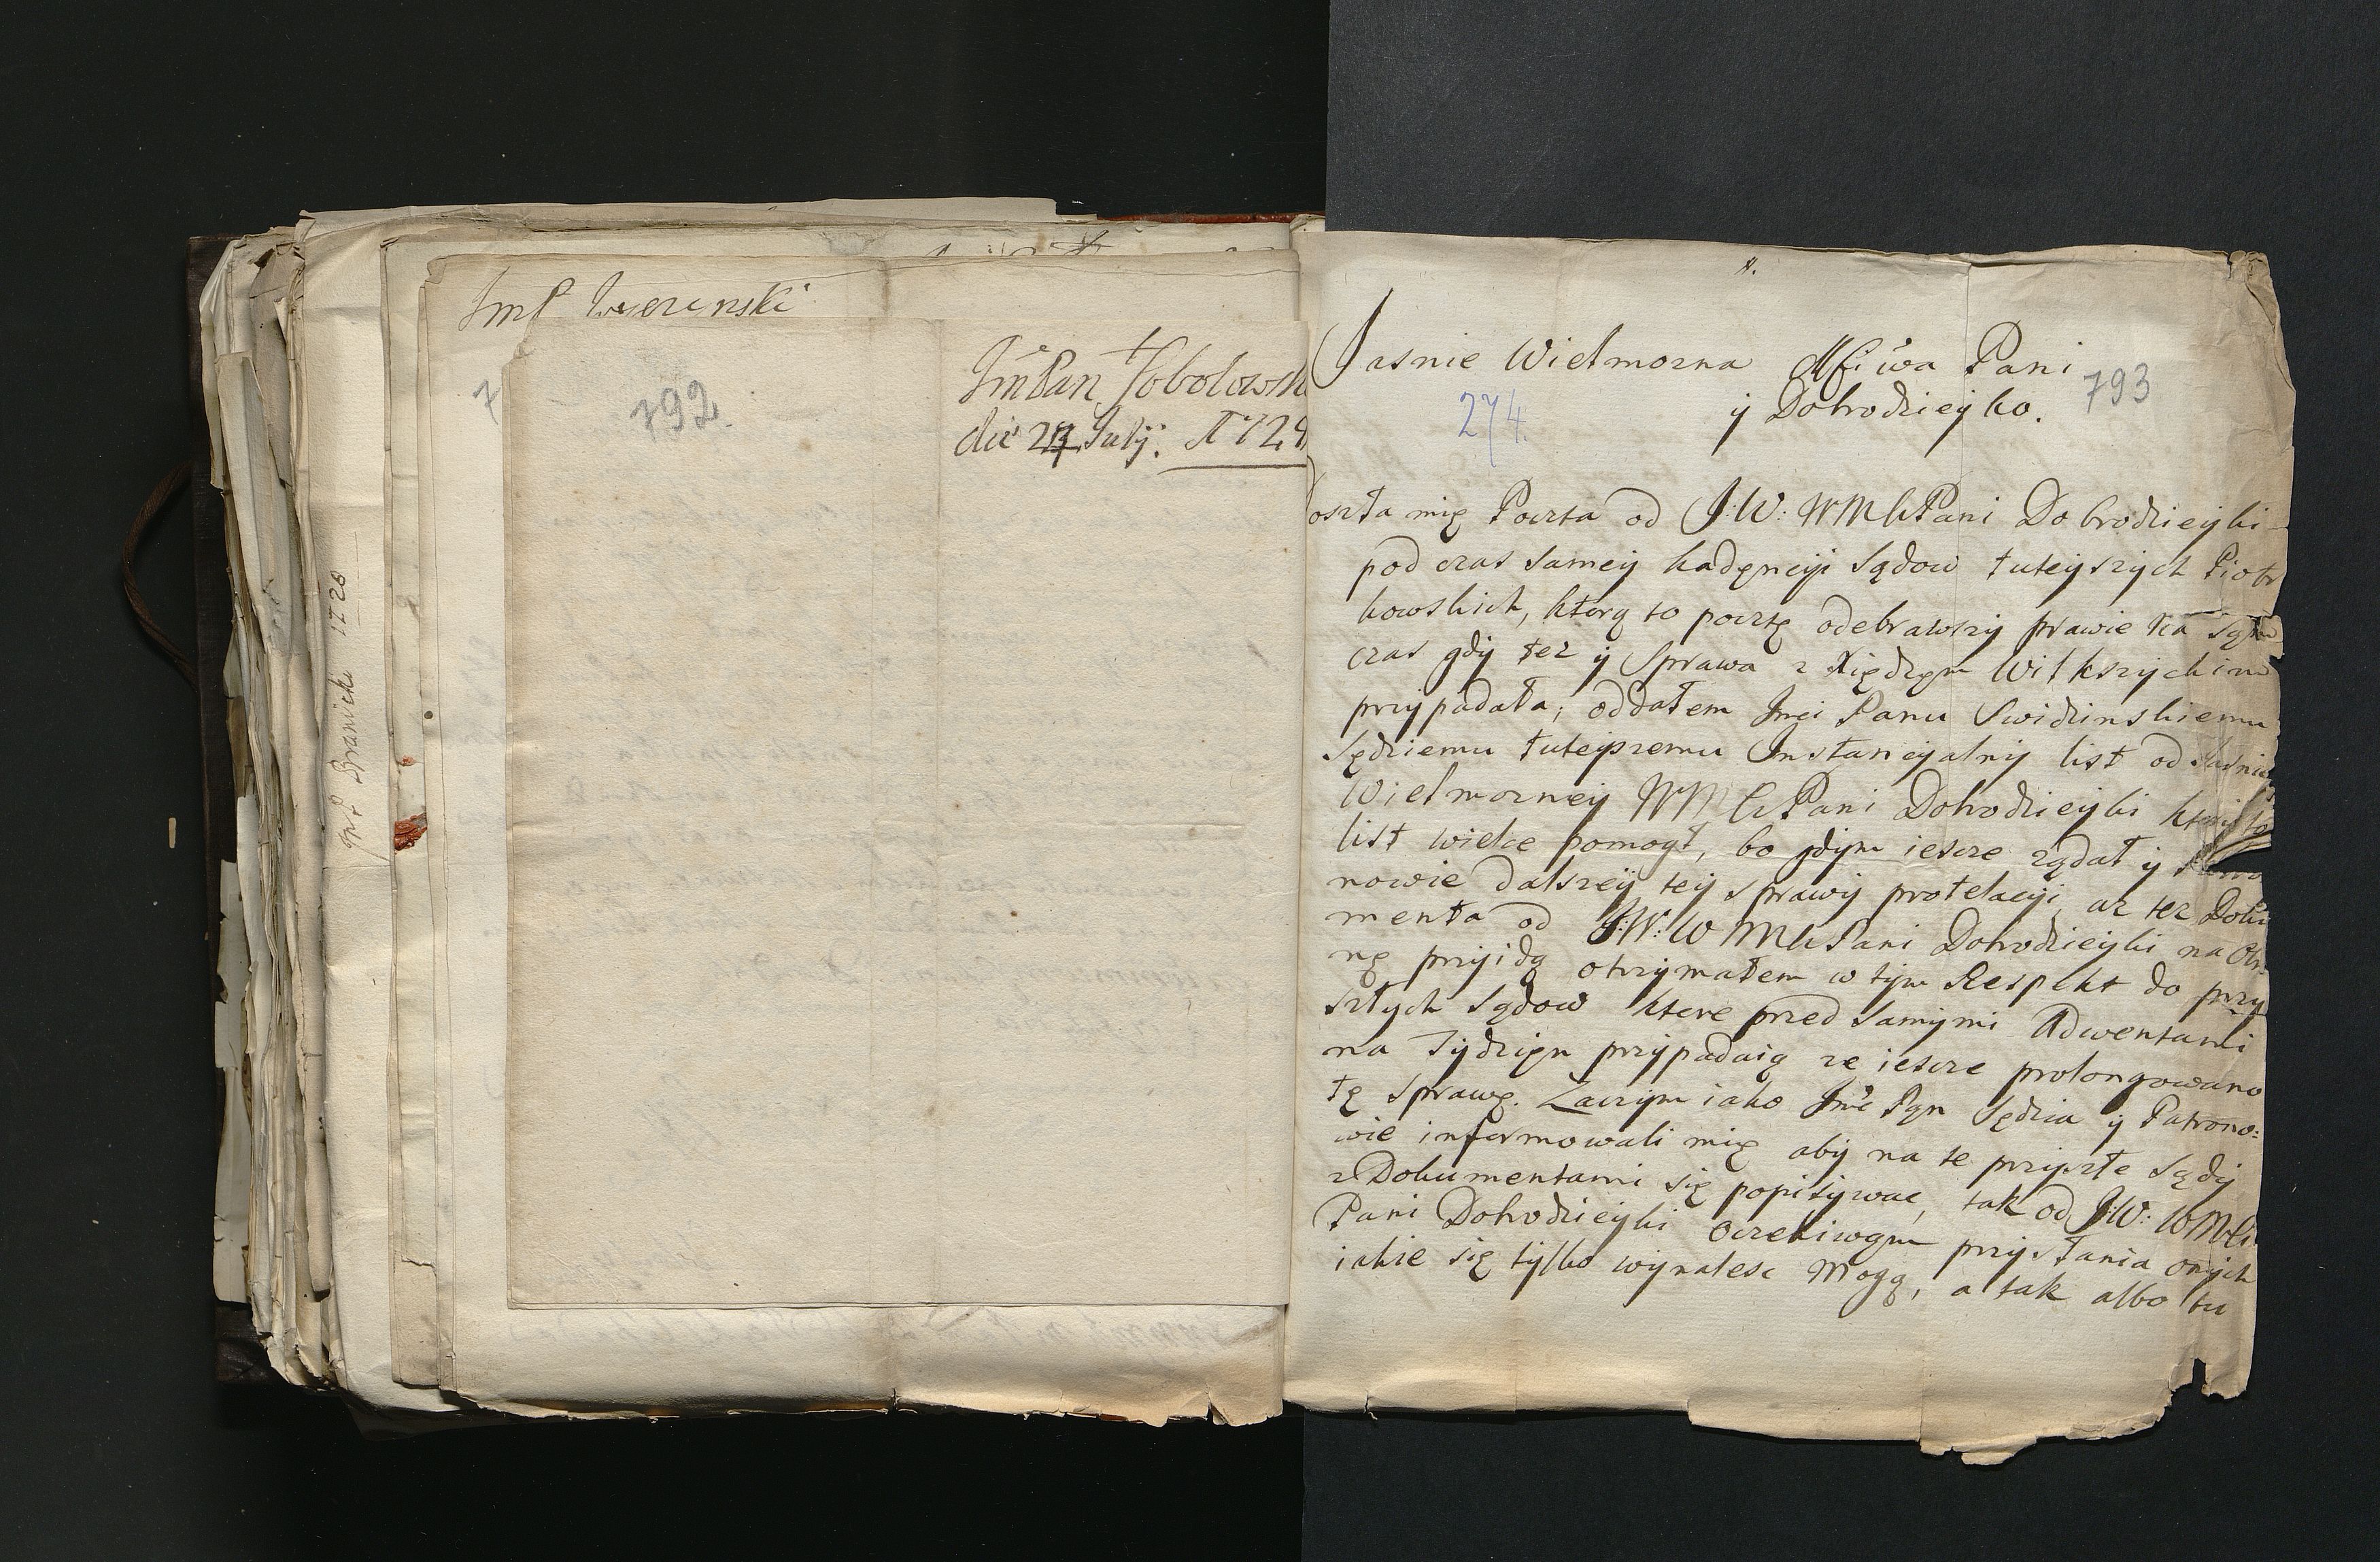 ImP
7
792.
ImPan Sobolewsk
die 27 Julij. A 172
JmP Branicki 1728
Jasnie Wielmozna Msciwa Pani
y Dobrodzieyko.
274.
793
oszła mię Poczta od J:W: WMM Pani Dobrodzieyki
pod czas samey kadencyi sądow tuteyszych Piotr
kowskich, ktorą to pocztę odebrawszy prawie na
czas gdy też y sprawa z Xiędzem Witkszychim
przypadała, oddałem Jmci Panu Swidzinskiemu
Sędziemu tuteyszemu Instancyalny list od Jasnie
Wielmozney WMM Pani Dobrodzieyki
list wielce pomogł, bo gdym iescze ządał y
nowie dalszey tey sprawy protelacyi az tez Doku
menta od J:W: WMM Pani Dobrodzieyki na
nę przyidą otrzymałem w tym Respekt do przy
szłych sądow ktore przed samymi Adwentami
na Tydzien przypadaią ze iescze prolongowano
tę sprawę. Zaczym iako Jmc Pan Sędzia y Patrono:
wie informowali mię aby na te przyszłe sądy
z Dokumentami się popisywac, tak od J:W: WMM
Pani Dobrodzieyki oczekiwam przysłania onych
iakie się tylko wynalesc mogą, a tak albo tu